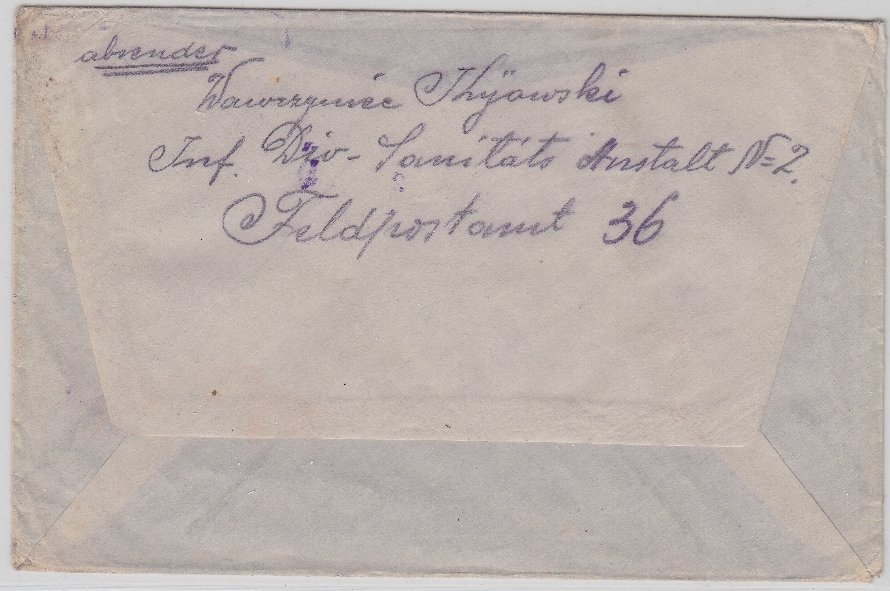 absender
Wawrzyniec
Inf. Div- Sanitäts Anstalt N=2.
Feldpostamt 36